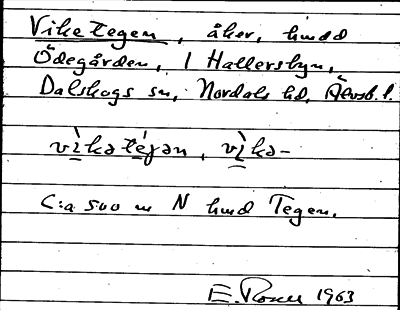 Viketegen, åker, hmd
Ödegården, 1 Hallersbyn,
Dalskogs sn, Nordals hd, Älvsb. l.
vìkatéjən, vìka-
C:a 500 m N hmd Tegen.
E. Rosell 1963